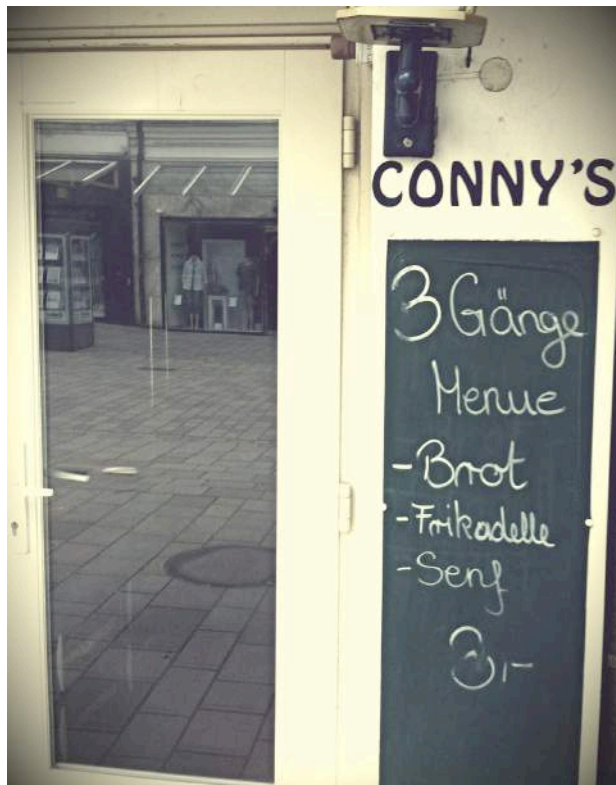 CONNY'S
3 Gänge
Menue
- Brot
- Frikadelle
- Senf
3,-